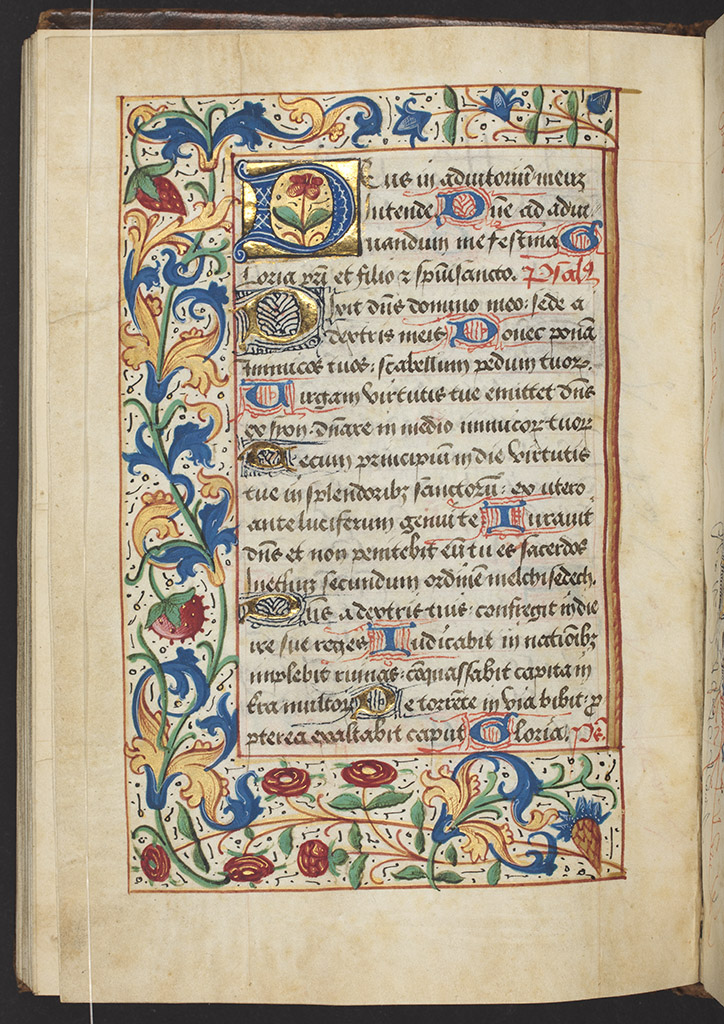 Deus in adiutoriū meuz
intende Dn̄e ad adiu
uandum me festina G
Loria pr̄i et filio ⁊ spiūi sancto. Psalꝰ
Dixit dn̄s domino meo: sede a
dextris meis Donec ponā
inimicos tuos: scabellum pedum tuoꝝ.
Uirgam virtutis tue emittet dn̄s
ex syon: dn̄are in medio inimicoꝝ tuoꝝ
Tecum principiū in die virtutis
tue in splendoribꝫ sanctorū: ex utero
ante luciferum genui te Iurauit
dn̄s et non penitebit eū tu es sacerdos
In eternuꝫ secundum ordinem melchisedech.
Dn̄s a dextris tuis: confregit in die
ire sue reges Iudicabit in nationibꝫ
implebit ruinas: cōquassabit capita in
tr̄a multoꝝ De torrēte in via bibit: ꝓ
pterea exaltabit caput Gloria. Ps.